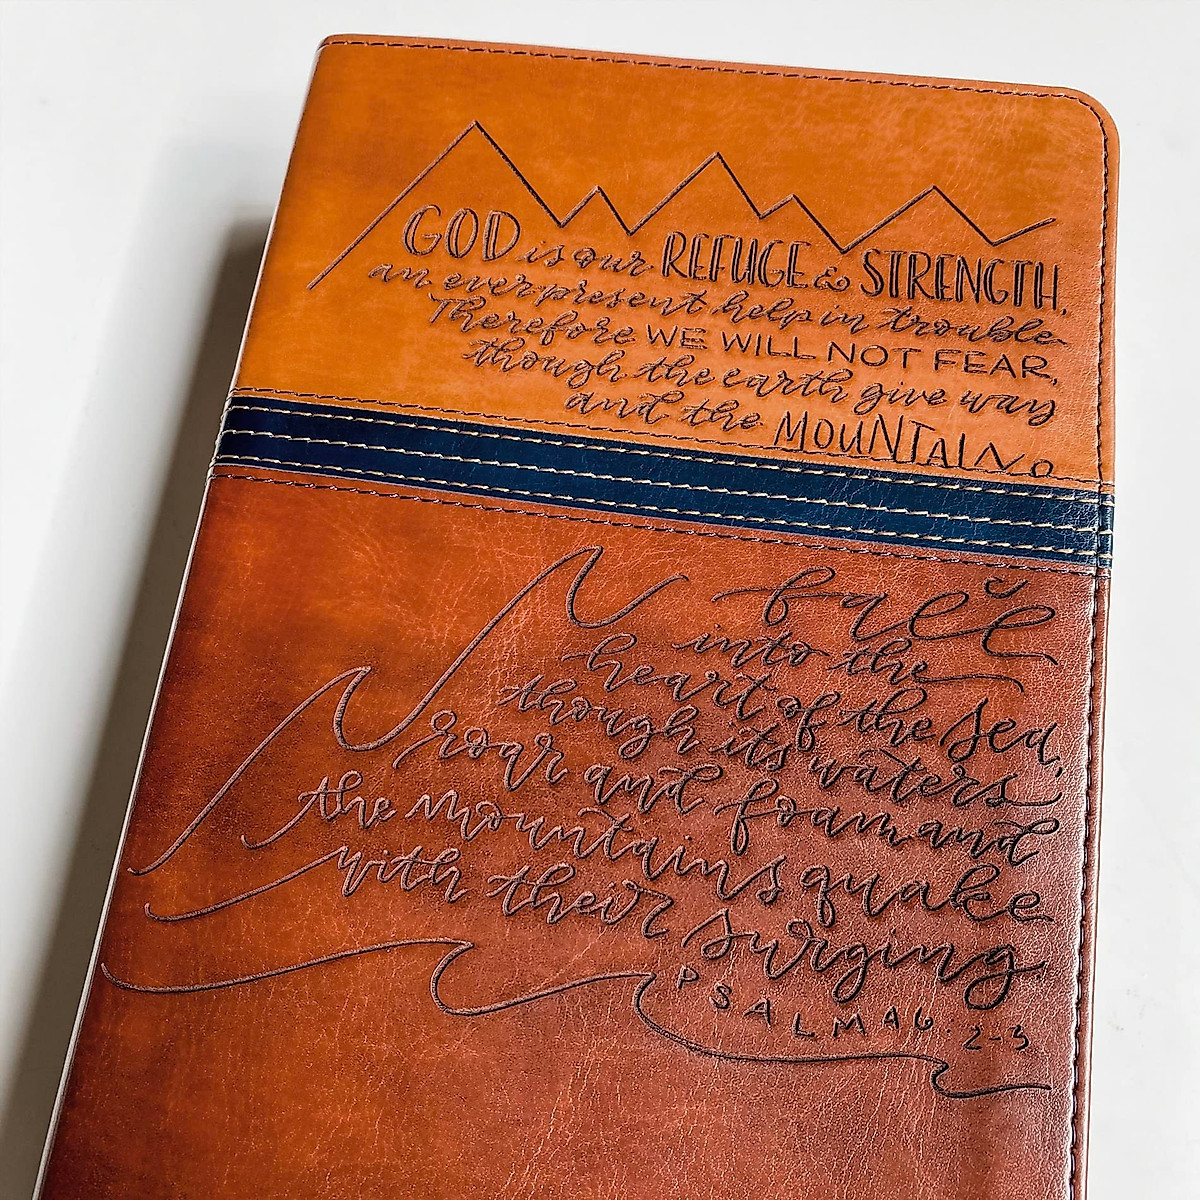 GOD is our REFUGE & STRENGTH,
an ever-present help in trouble.
Therefore WE WILL NOT FEAR,
though the earth give way
and the MOUNTAINS
fall
into the
heart of the sea,
though its waters
roar and foam and
the mountains quake
with their surging
PSALM 46:2-3